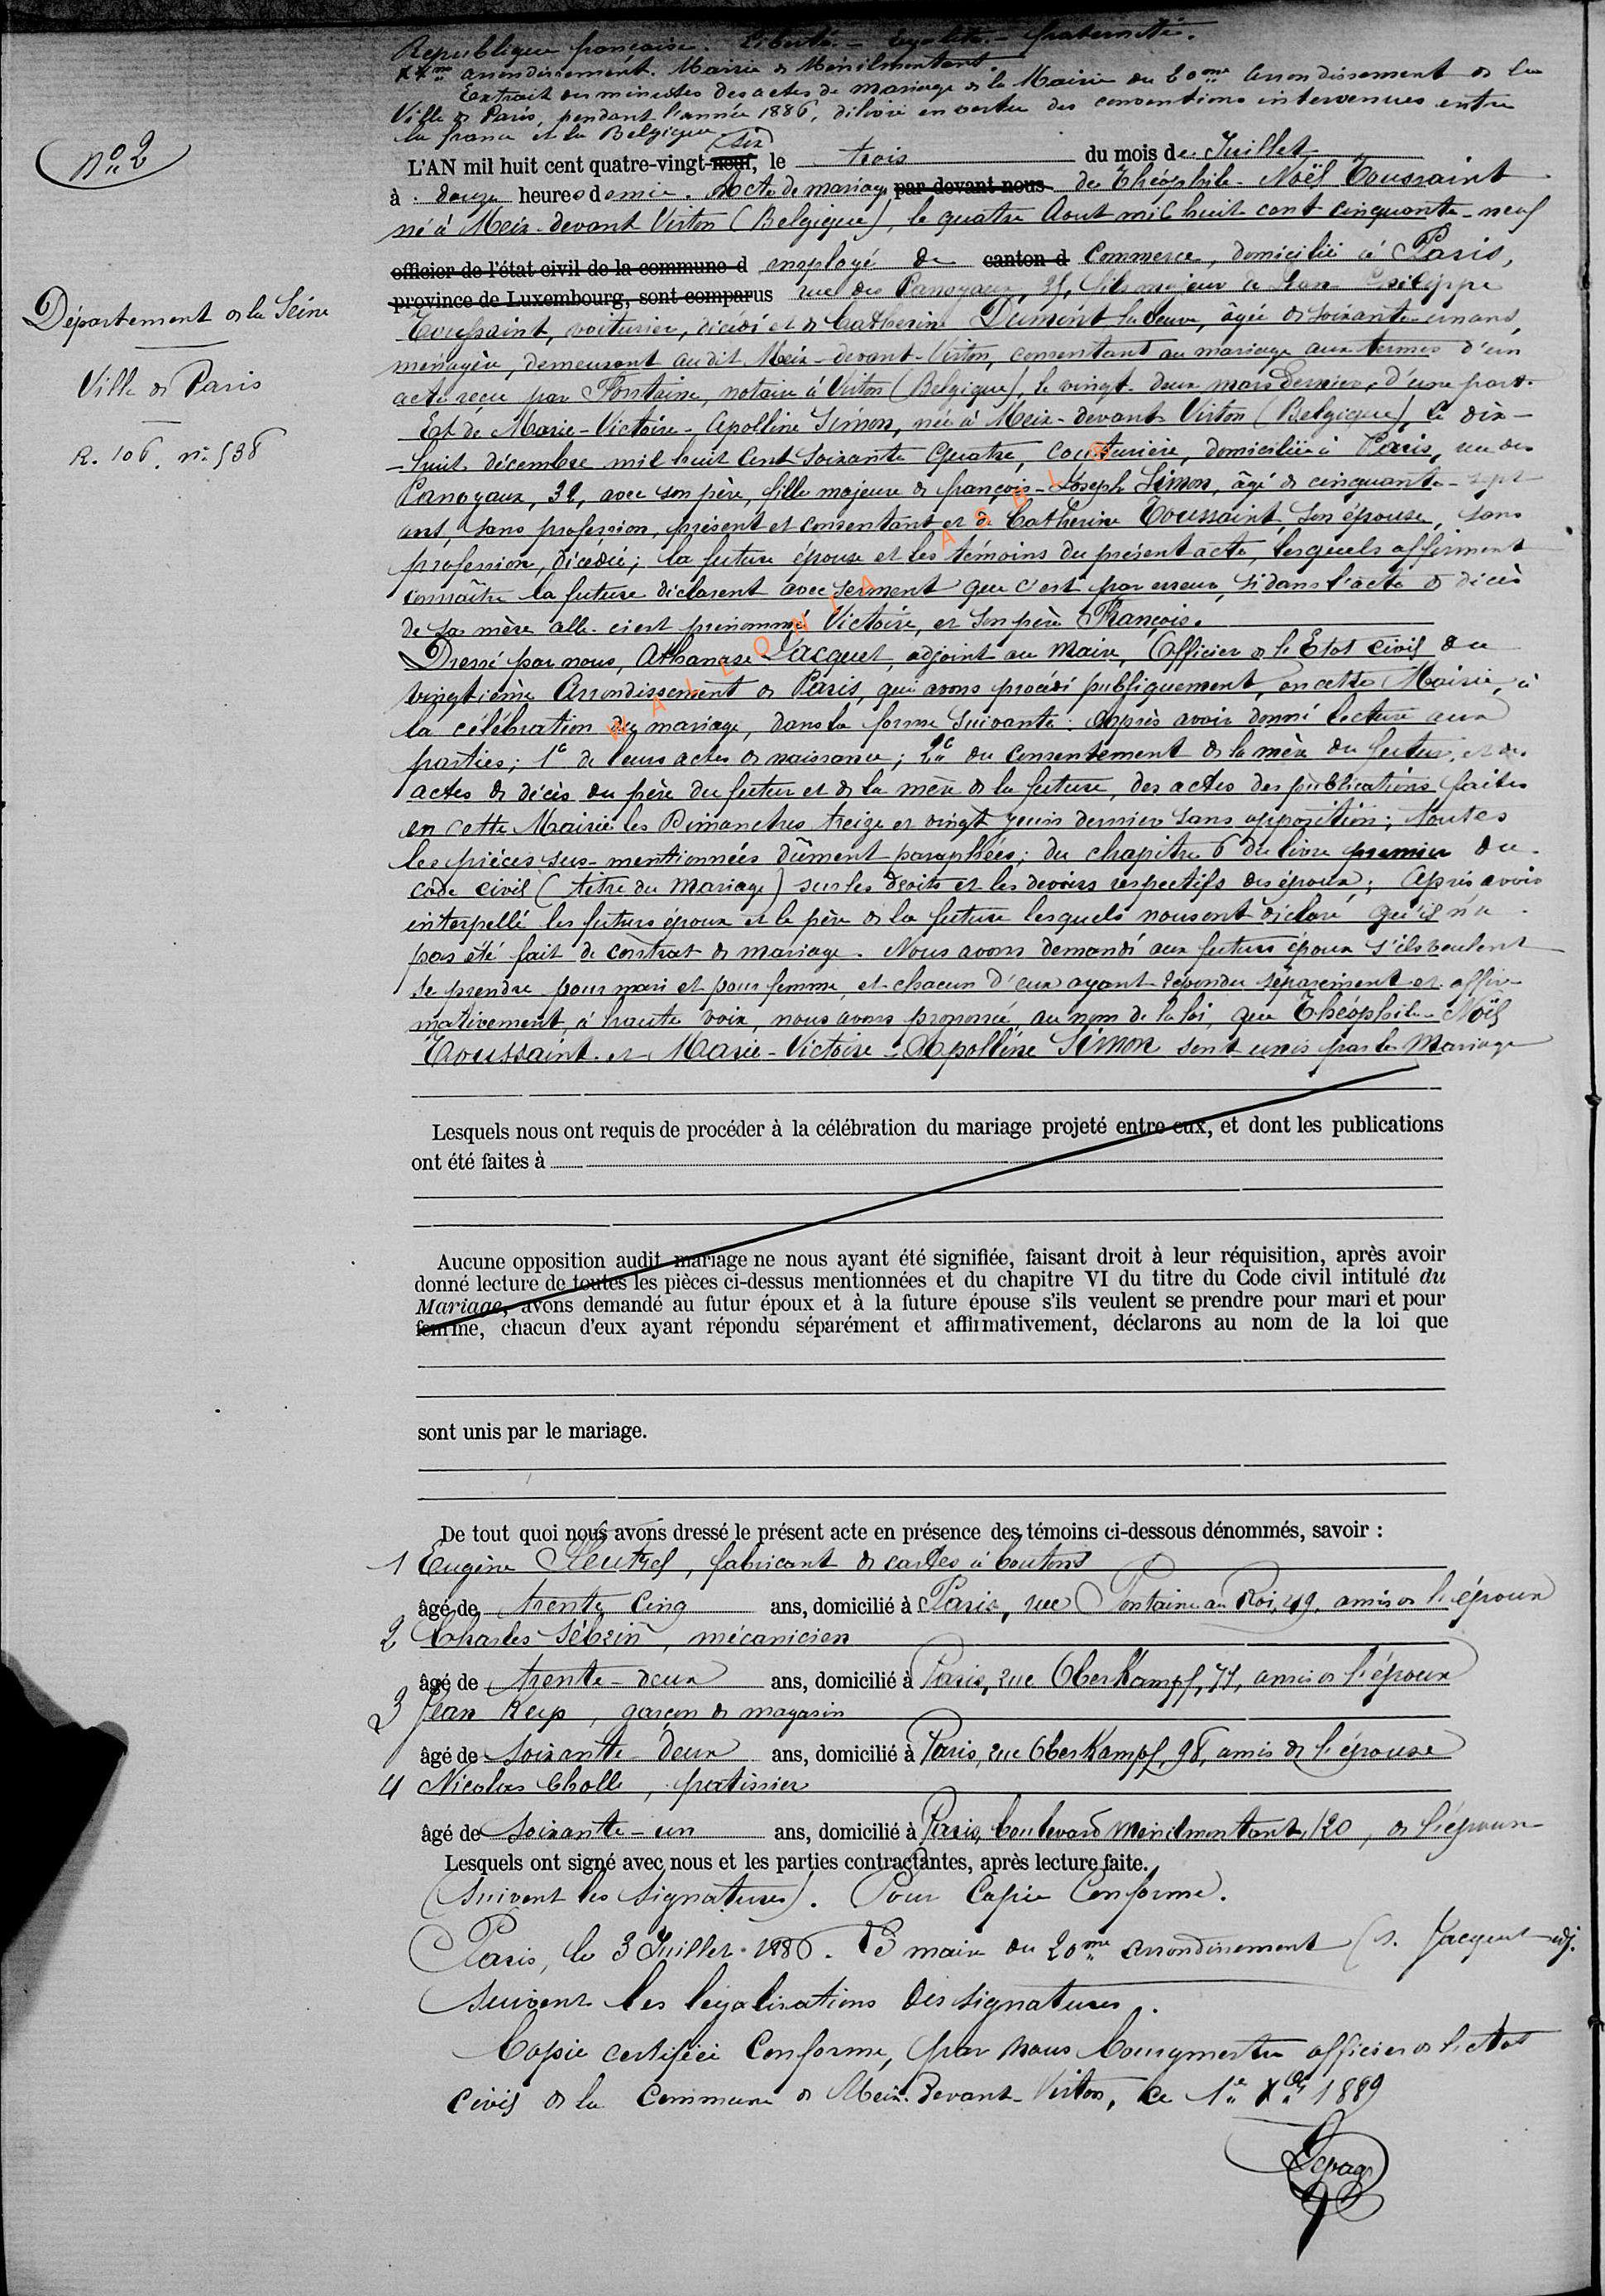 République française. Liberté – Egalité – fraternité.
XXme arrondissement. Mairie de Ménilmontant.
Extrait des minutes des actes de mariage de la Mairie du 20me Arrondissement de la
Ville de Paris, pendant l'année 1886, délivré en vertu des conventions intervenues entre
la france et la Belgique
No 2
L'AN mil huit cent quatre-vingt-neuf, (six) le trois du mois de Juillet
à douze heures demie. Acte de mariage par devant nous de Théophile-Noël Toussaint
né à Meix-devant Virton (Belgique), le quatre Aout mil huit cent cinquante-neuf
officier de l'état civil de la commune d employé de canton d Commerce, domicilié à Paris,
province de Luxembourg, sont comparus rue des Panoyaux, 25, fils majeur de Jean Philippe
Département de la Seine
Ville de Paris
R. 106. no 538
Toussaint, voiturier, décédé et de Catherine Dument sa veuve, âgée de soixante-un ans,
ménagère, demeurant audit Meix-devant-Virton, consentant au mariage aux termes d'un
acte reçu par Fontaine, notaire à Virton (Belgique), le vingt-deux mars dernier, d'une part.
Et de Marie-Victoire-Apolline Simon, née à Meix-devant Virton (Belgique), le dix-
-huit décembre mil huit cent soixante quatre, couturière, domiciliée à Paris, rue des
Panoyaux, 32, avec son père, fille majeure de françois-Joseph Simon, âgé de cinquante-sept
ans, sans profession, présent et consentant et de Catherine Toussaint, son épouse, sans
profession, décédée; la future épouse et les témoins du présent acte, lesquels affirment
connaître la future déclarent avec serment que c'est par erreur, si dans l'acte de décès
de sa mère elle-ci est prénommé Victoire, et son père François.
Dressé par nous, Athanase Jacquet, adjoint au Maire, Officier de l'Etat civil du
vingtième Arrondissement de Paris, qui avons procédé publiquement, en cette Mairie, à
la célébration du mariage, dans la forme suivante: Après avoir donné lecture aux
parties; 1o de leurs actes de naissance; 2o du consentement de la mère du futur, et des
actes de décès du père du futur et de la mère de la future, des actes des publications faites
en cette Mairie les Dimanches treize et vingt Juin dernier sans opposition; toutes
les pièces sus-mentionnées dûment paraphées; du chapitre 6 du livre premier du
code civil (titre du Mariage) sur les droits et les devoirs respectifs des époux; Après avoir
interpellé les futurs époux et le père de la future lesquels nous ont déclaré qu'il n'a
pas été fait de contrat de mariage. Nous avons demandé aux futurs époux s'ils veulent
se prendre pour mari et pour femme, et chacun d'eux ayant répondu séparément et affir-
mativement, à haute voix, nous avons prononcé, au nom de la loi, que Théophile-Noël
Toussaint et Marie-Victoire-Apolline Simon sont unis par le Mariage
WALLONIA ASBL
Lesquels nous ont requis de procéder à la célébration du mariage projeté entre eux, et dont les publications
ont été faites à
Aucune opposition audit mariage ne nous ayant été signifiée, faisant droit à leur réquisition, après avoir
donné lecture de toutes les pièces ci-dessus mentionnées et du chapitre VI du titre du Code civil intitulé du
Mariage, avons demandé au futur époux et à la future épouse s'ils veulent se prendre pour mari et pour
femme, chacun d'eux ayant répondu séparément et affirmativement, déclarons au nom de la loi que
sont unis par le mariage.
De tout quoi nous avons dressé le présent acte en présence des témoins ci-dessous dénommés, savoir :
1 Eugène fabricant de cartes à boutons
âgé de trente cinq ans, domicilié à Paris, rue Fontaine au Roi, 49, amis de l'époux
2 Charles Sébrin, mécanicien
âgé de trente-deux ans, domicilié à Paris, rue Oberkampf, 77, amis de l'époux
3 Jean garçon de magasin
âgé de soixante-deux ans, domicilié à Paris, rue Oberkampf, 98, amis de l'épouse
4 Nicolas Cholle, patissier
âgé de soixante-un ans, domicilié à Paris, boulevard Menilmontant, 120, de l'épouse
Lesquels ont signé avec nous et les parties contractantes, après lecture faite.
(suivent les signatures). Pour Copie Conforme.
Paris, le 3 Juillet 1886. maire du 20me arrondissement (s. Jacquet adj.
suivent les légalisations des signatures.
Copie certifiée Conforme, par nous bourgmestre officier de l'état
civil de la Commune de Meix-Devant-Virton, ce 1er Xbre 1889
Lepage